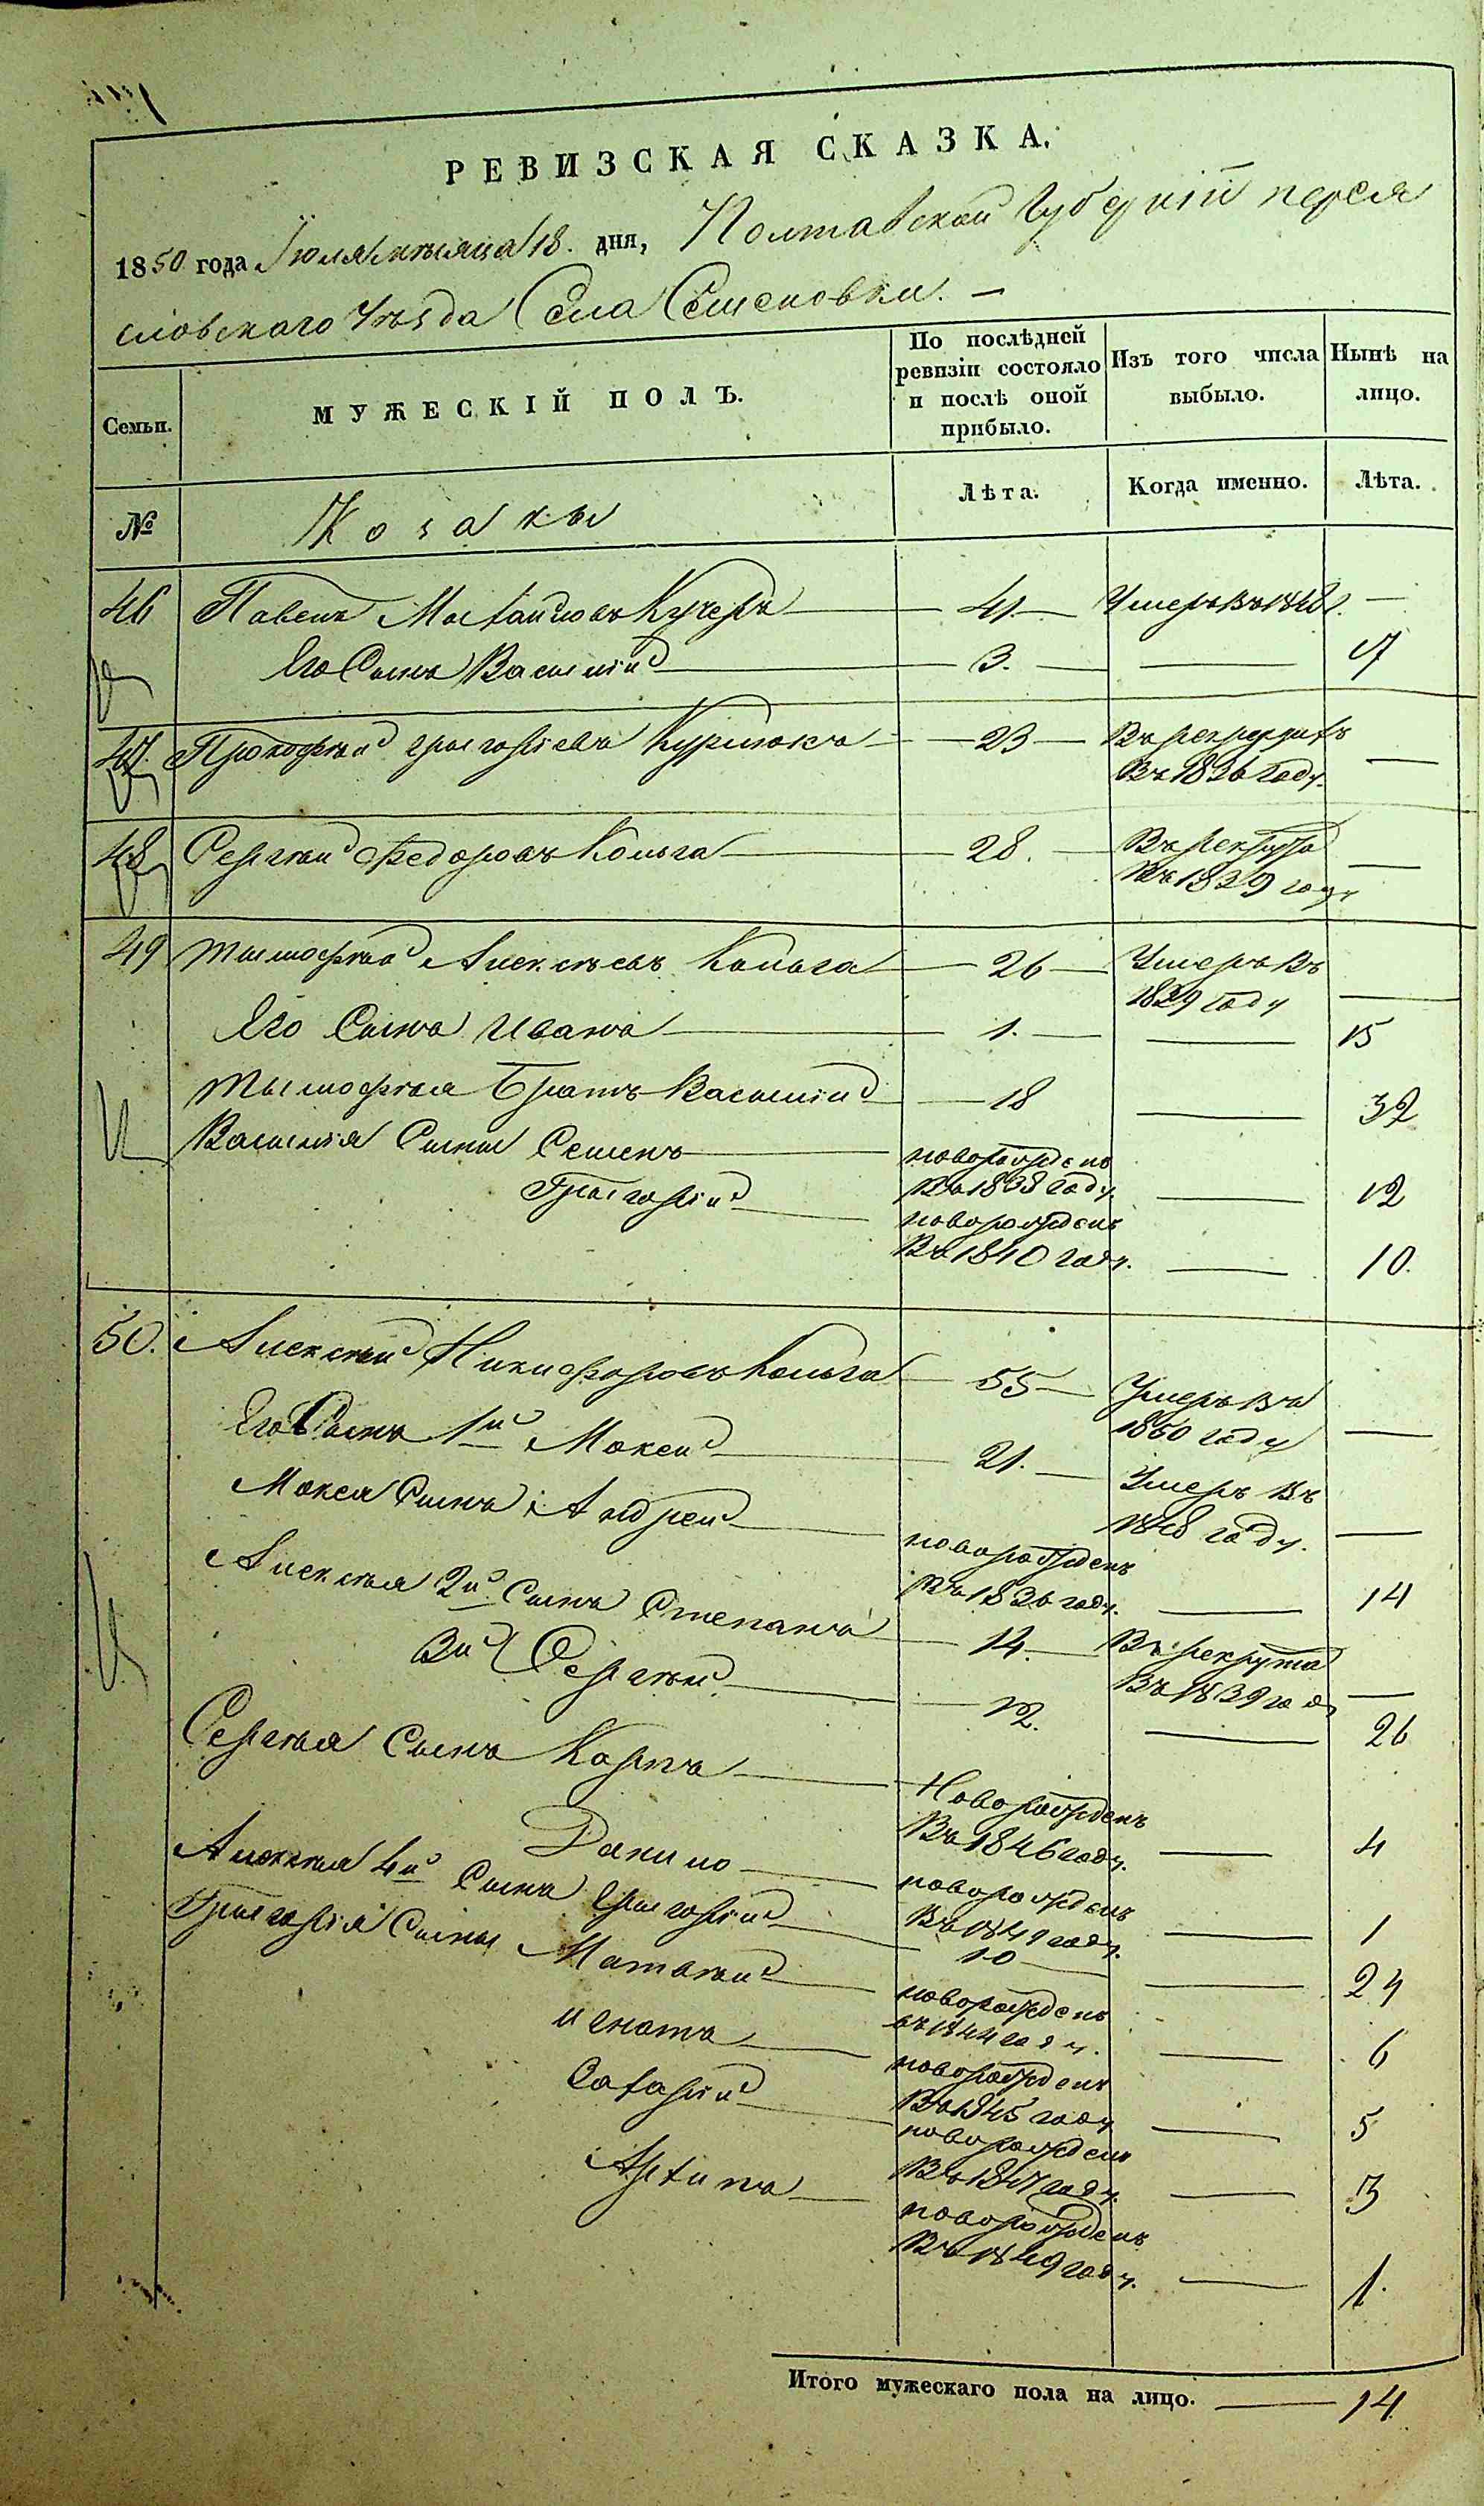 РЕВИЗСКАЯ СКАЗКА.
1850 года Іюля мѣсяца 18. дня, Полтавской Губерніи перея
словскаго Уѣзда Села Семеновки. —
Семьи.
МУЖЕСКІЙ ПОЛЪ.
По послѣдней ревизіи состояло и послѣ оной прибыло.
Изъ того числа выбыло.
Нынѣ на лицо.
№
Козаки
Лѣта.
Когда именно.
Лѣта.
46 Павелъ Кучеръ — 41 — Умеръ въ —
Его Сынъ Василій — 3. — —
47. Прокофій Григоріевъ — 23 —
въ 1836 году. —
48 Сергѣй Федоровъ Кольга — 28. — Въ рекрута
Въ 1839 году —
49 Тимофѣй Алексѣевъ Кольга — 26 — Умеръ Въ
1839 году —
Его Сынъ Иванъ — 1. — — 15
Тимофѣя Братъ Василій — 18 — 32
Василія Сыны Семенъ — новорожденъ
Въ 1838 году. — 12
Григорій — новорожденъ
Въ 1840 году. — 10.
50. Алексѣй Никифоровъ Кольга — 55 — Умеръ въ
1850 году —
Его Сынъ 1й Мокей — 21. — Умеръ Въ
году. —
Мокея Сынъ Андрей — новорожденъ
Въ 1836 году. — 14
Алексѣя 2й Сынъ Степанъ — 14. — Въ рекрута
Въ 1839 год —
3й Сергѣй — 12. — 26
Сергѣя Сынъ Карпъ — Новорожденъ
Въ 1846 году. — 4
Данило — новорожденъ
Въ 1849 году. — 1
Алексѣя 4й Сынъ Григорій — 10 — 24
Григорія Сыны Матвѣй — новорожденъ
въ 1844 году. — 6
Игнатъ — новорожденъ
Въ 1845 году — 5
Захарій — новорожденъ
Въ 1847 году. — 3
Архипъ — новорожденъ
Въ 1849 году. — 1.
Итого мужескаго пола на лицо. — 14